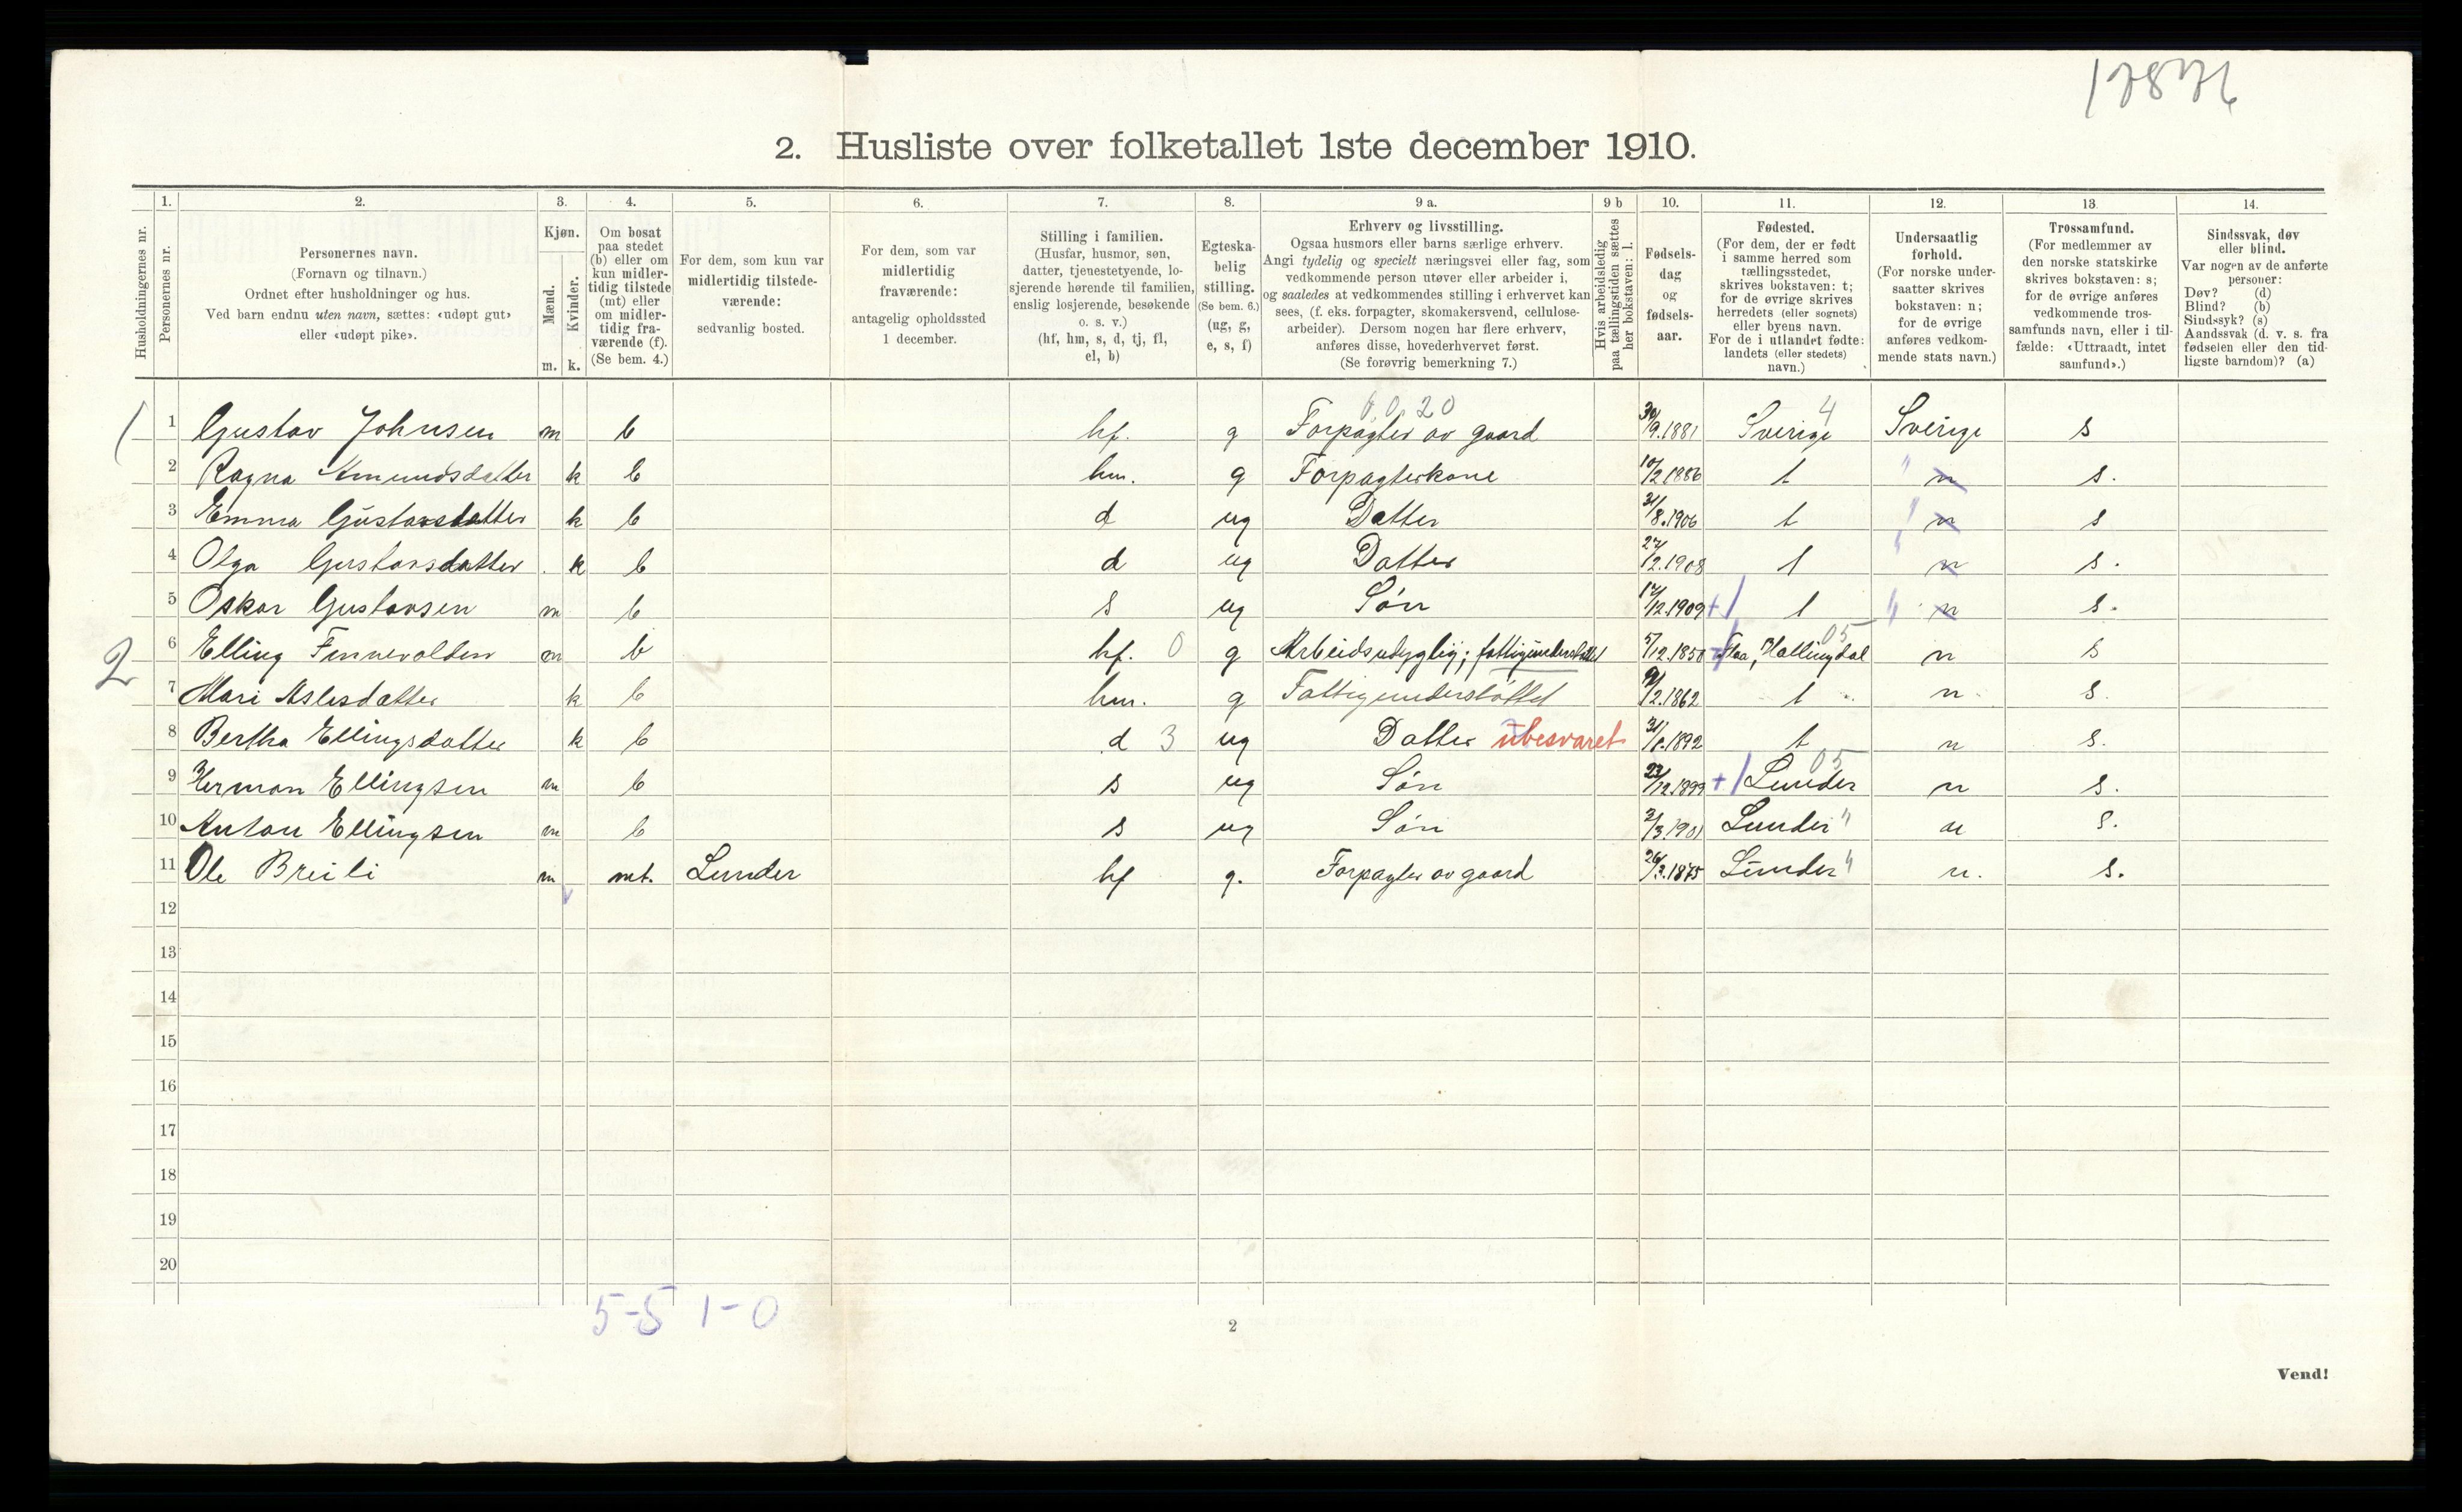 2. Husliste over folketallet 1ste december 1910.
Husholdningernes nr.
1. Personernes nr.
2. Personernes navn.
(Fornavn og tilnavn.)
Ordnet efter husholdninger og hus.
Ved barn endnu uten navn, sættes: «udøpt gut»
eller «udøpt pike».
3. Kjøn.
Mænd. m.
Kvinder. k.
4. Om bosat
paa stedet
(b) eller om
kun midler-
tidig tilstede
(mt) eller
om midler-
tidig fra-
værende (f).
(Se bem. 4.)
5. For dem, som kun var
midlertidig tilstede-
værende:
sedvanlig bosted.
6. For dem, som var
midlertidig
fraværende:
antagelig opholdssted
1 december.
7. Stilling i familien.
(Husfar, husmor, søn,
datter, tjenestetyende, lo-
sjerende hørende til familien,
enslig losjerende, besøkende
o. s. v.)
(hf, hm, s, d, tj, fl,
el, b)
8. Egteska-
belig
stilling.
(Se bem. 6.)
(ug, g,
e, s, f)
9 a. Erhverv og livsstilling.
Ogsaa husmors eller barns særlige erhverv.
Angi tydelig og specielt næringsvei eller fag, som
vedkommende person utøver eller arbeider i,
og saaledes at vedkommendes stilling i erhvervet kan
sees, (f. eks. forpagter, skomakersvend, cellulose-
arbeider). Dersom nogen har flere erhverv,
anføres disse, hovederhvervet først.
(Se forøvrig bemerkning 7.)
9 b Hvis arbeidsledig
paa tællingstiden sættes
her bokstaven: l.
10. Fødsels-
dag
og
fødsels-
aar.
11. Fødested.
(For dem, der er født
i samme herred som
tællingsstedet,
skrives bokstaven: t;
for de øvrige skrives
herredets (eller sognets)
eller byens navn.
For de i utlandet fødte:
landets (eller stedets)
navn.)
12. Undersaatlig
forhold.
(For norske under-
saatter skrives
bokstaven: n;
for de øvrige
anføres vedkom-
mende stats navn.)
13. Trossamfund.
(For medlemmer av
den norske statskirke
skrives bokstaven: s;
for de øvrige anføres
vedkommende tros-
samfunds navn, eller i til-
fælde: «Uttraadt, intet
samfund».)
14. Sindssvak, døv
eller blind.
Var nogen av de anførte
personer:
Døv? (d)
Blind? (b)
Sindssyk? (s)
Aandssvak (d. v. s. fra
fødselen eller den tid-
ligste barndom)? (a)
1 1 Gustav Johnsen m b hf. g Forpagter av gaard 30/9.1881 Sverige 4 Sverige s
2 Ragna Amundsdatter k b hm. g Forpagterkone 10/2 1886 t " n s.
3 Emma Gustavsdatter k b d ug Datter 31/8.1906 t " n s
4 Olga Gustavsdatter k b d ug Datter 27/12.1908 t " n s.
5 Oskar Gustavsen m b s ug Søn 17/12.1909 t " n s.
2 6 Elling Finnevolden m b hf. 0 g Arbeidsudyglig; fattigunderstøttet 5/12.1850 Flaa, Hallingdal 05 n s
7 Mari Aslesdatter k b hm. g Fattigunderstøttet 12.1862 t n s.
8 Bertha Ellingsdatter k b d 3 ug Datter ubesvaret 31/8.1892 t n s.
9 Herman Ellingsen m b s ug Søn 23/12.1899 Lunder 05 n s.
10 Anton Ellingsen m b s ug Søn 2/3.1901 Lunder " n s.
11 Ole Breili m mt. Lunder hf g. Forpagter av gaard 26/3.1875 Lunder " n. s.
12
13
14
15
16
17
18
19
20
5-5 1-0
2
Vend!